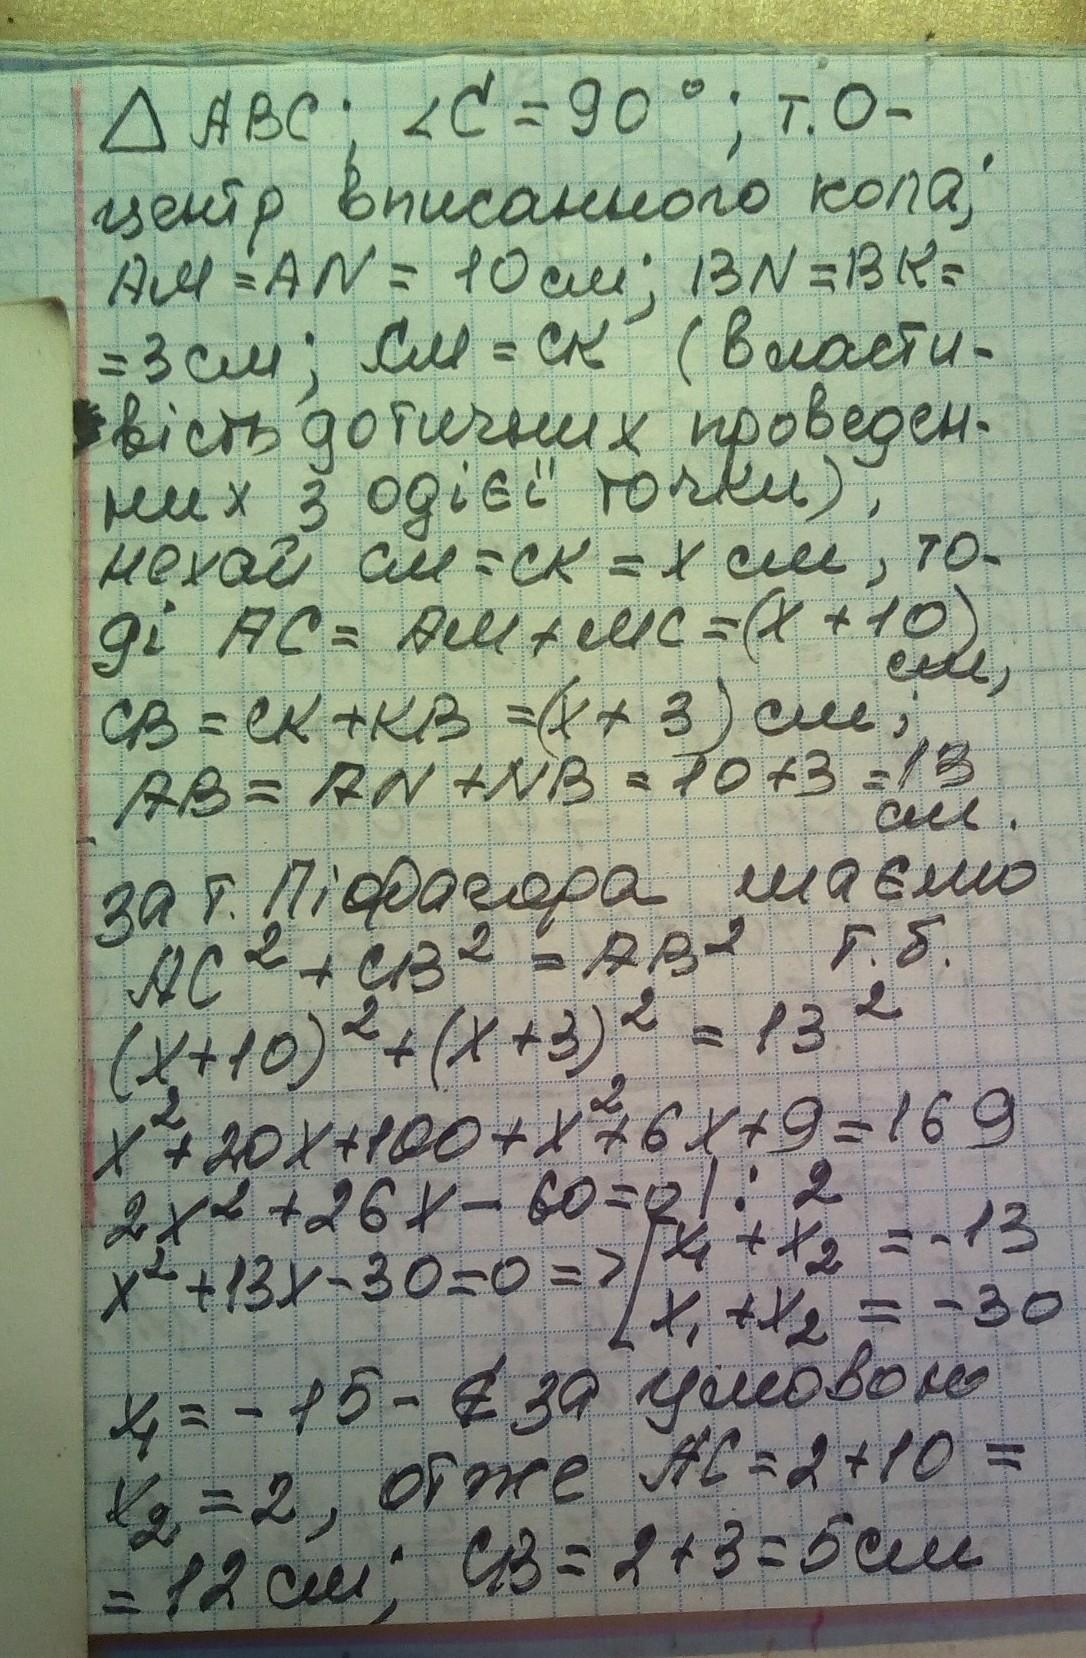 △ ABC; ∠C = 90°; т. O -
центр вписанного кола;
AM = AN = 10 см; BN = BK =
= 3 см; CM = CK (власти-
вість дотичних проведен-
них з одієї точки),
нехай CM = CK = x см, то-
ді AC = AM + MC = (x + 10)
см,
CB = CK + KB = (x + 3) см;
AB = AN + NB = 10 + 3 = 13
см.
за т. Піфагора маємо
AC² + CB² = AB² т.б.
(x+10)² + (x+3)² = 13²
x² + 20x + 100 + x² + 6x + 9 = 169
2x² + 26x - 60 = 0 | : 2
x² + 13x - 30 = 0 => [ x₁ + x₂ = -13
x₁ + x₂ = -30
x₁ = -15 - ∉ за умовою
x₂ = 2, отже AC = 2 + 10 =
= 12 см; CB = 2 + 3 = 5 см